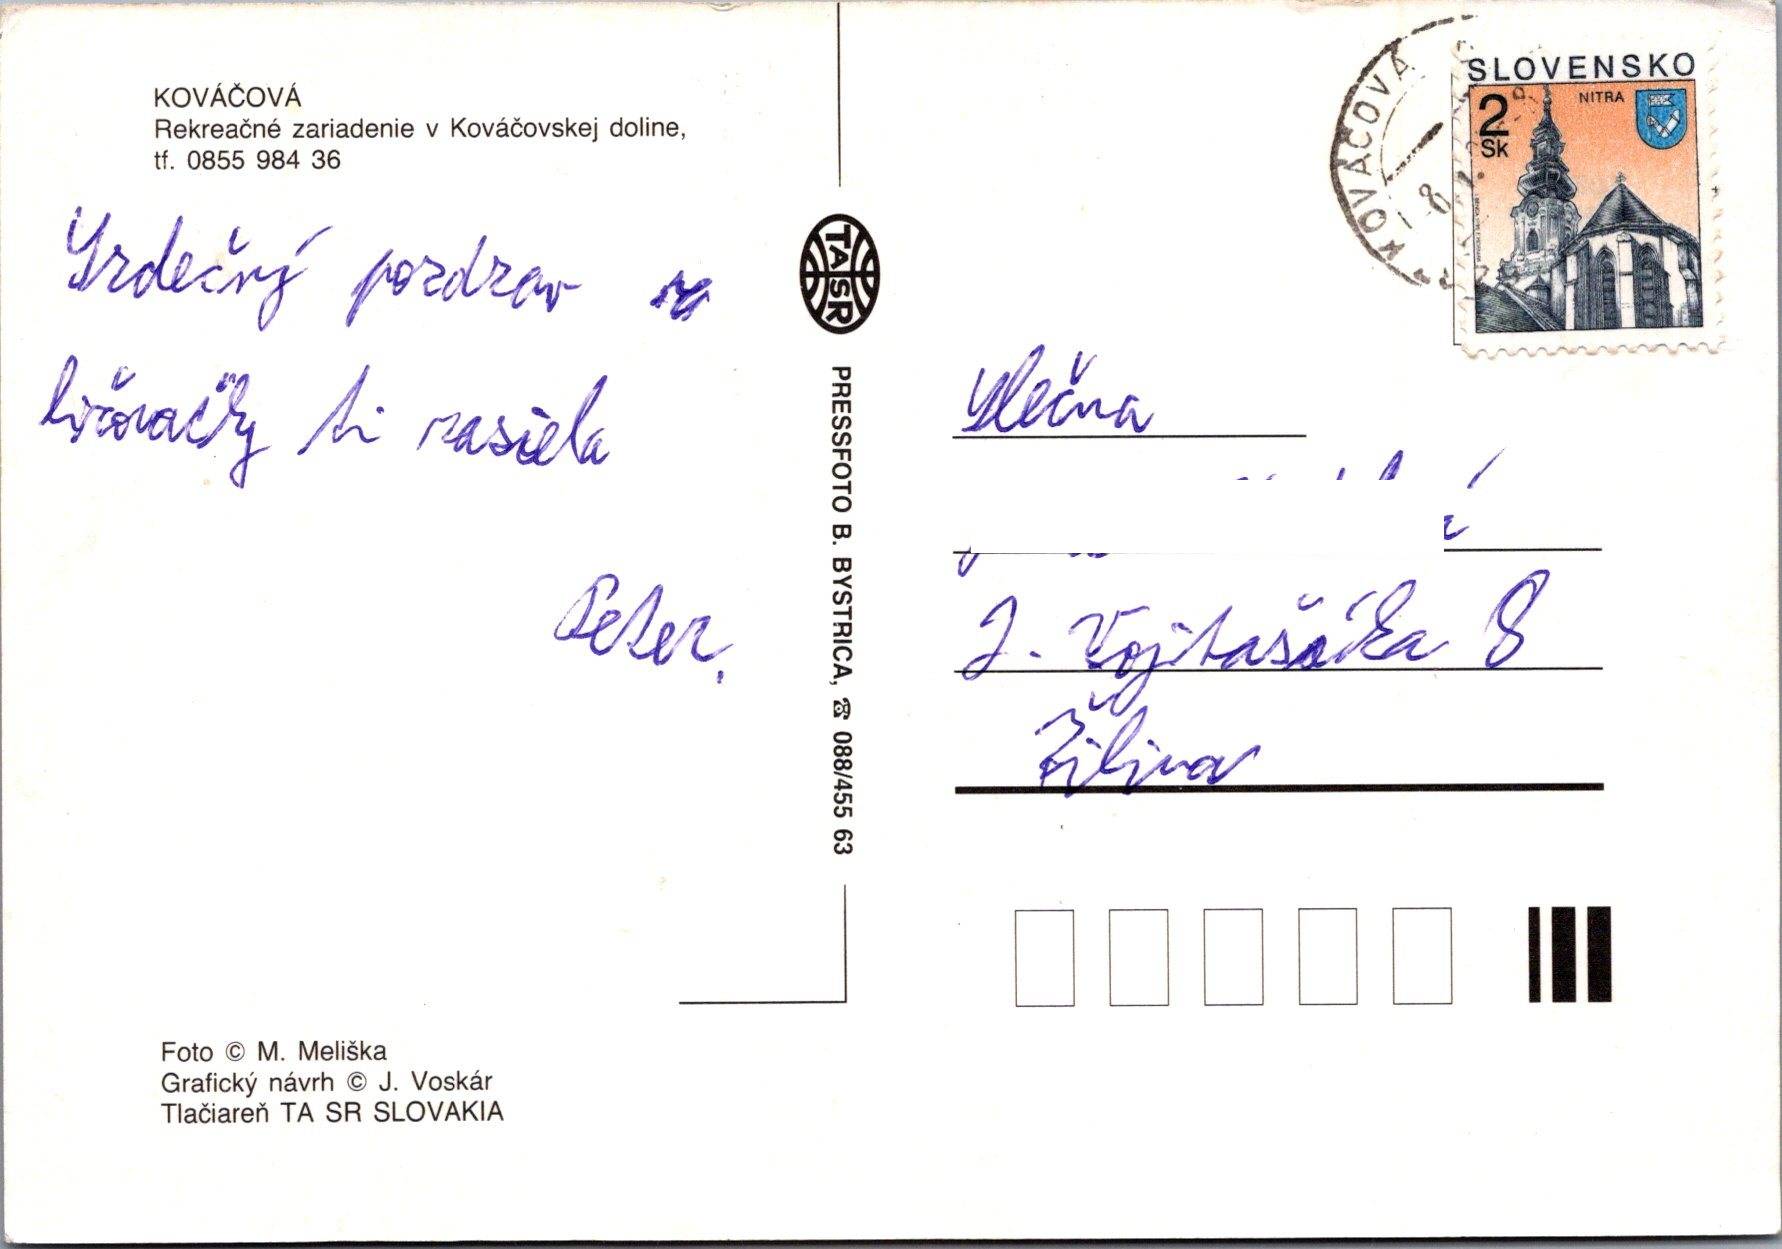 KOVÁČOVÁ
Rekreačné zariadenie v Kováčovskej doline,
tf. 0855 984 36
Srdečný pozdrav z
ti zasiela
Peter.
TASR
PRESSFOTO B. BYSTRICA, ☎ 088/455 63
Foto © M. Meliška
Grafický návrh © J. Voskár
Tlačiareň TA SR SLOVAKIA
KOVÁČOVÁ
SLOVENSKO
NITRA
2
Sk
Slečna
J. Vojtaššáka 8
Žilina